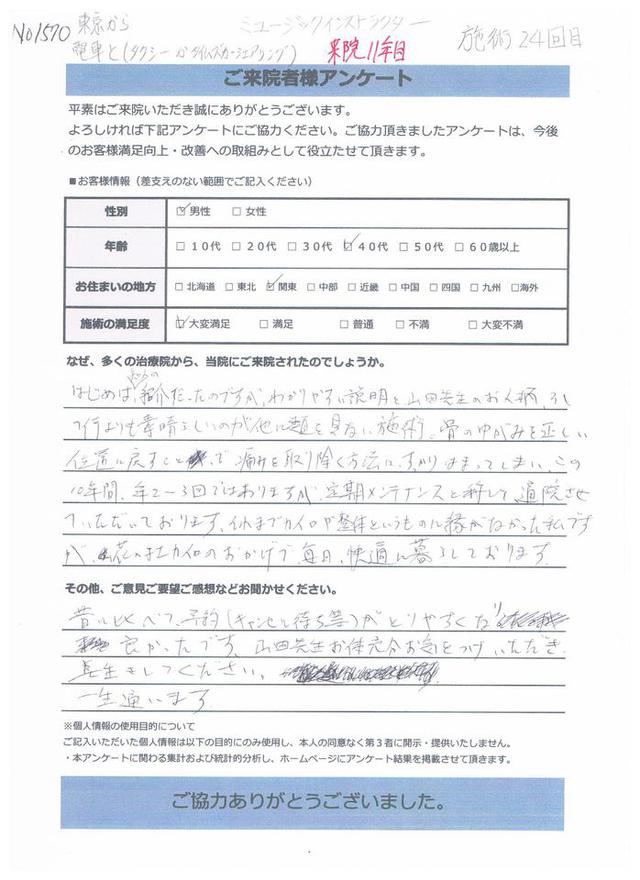 No1570 東京から ミュージックインストラクター
電車と(タクシーかタイムズカーシェアリング) 来院11年目 施術24回目
ご来院者様アンケート
平素はご来院いただき誠にありがとうございます。
よろしければ下記アンケートにご協力ください。ご協力頂きましたアンケートは、今後
のお客様満足向上・改善への取組みとして役立たせて頂きます。
■お客様情報（差支えのない範囲でご記入ください）
性別 ☑男性 □女性
年齢 □10代 □20代 □30代 ☑40代 □50代 □60歳以上
お住まいの地方 □北海道 □東北 ☑関東 □中部 □近畿 □中国 □四国 □九州 □海外
施術の満足度 ☑大変満足 □満足 □普通 □不満 □大変不満
なぜ、多くの治療院から、当院にご来院されたのでしょうか。
はじめは、紹介だったのですが、わかりやすい説明と山田先生のお人柄、そし
て何よりも素晴らしいのが他に類を見ない施術、骨のゆがみを正しい
位置に戻すことで痛みを取り除く方法に、すっかりはまってしまい、この
10年間、年2〜3回ではありますが、定期メンテナンスと称して通院させ
ていただいております。それまでカイロや整体というものに縁がなかった私です
が、花のえカイロのおかげで毎日、快適に暮らしております。
その他、ご意見ご要望ご感想などお聞かせください。
昔に比べて、予約(キャンセル待ち等)がとりやすくな
良かったです。山田先生お体充分お気をつけいただき
長生きしてください。
一生通います
※個人情報の使用目的について
ご記入いただいた個人情報は以下の目的にのみ使用し、本人の同意なく第3者に開示・提供いたしません。
・本アンケートに関わる集計および統計的分析し、ホームページにアンケート結果を掲載させて頂きます。
ご協力ありがとうございました。